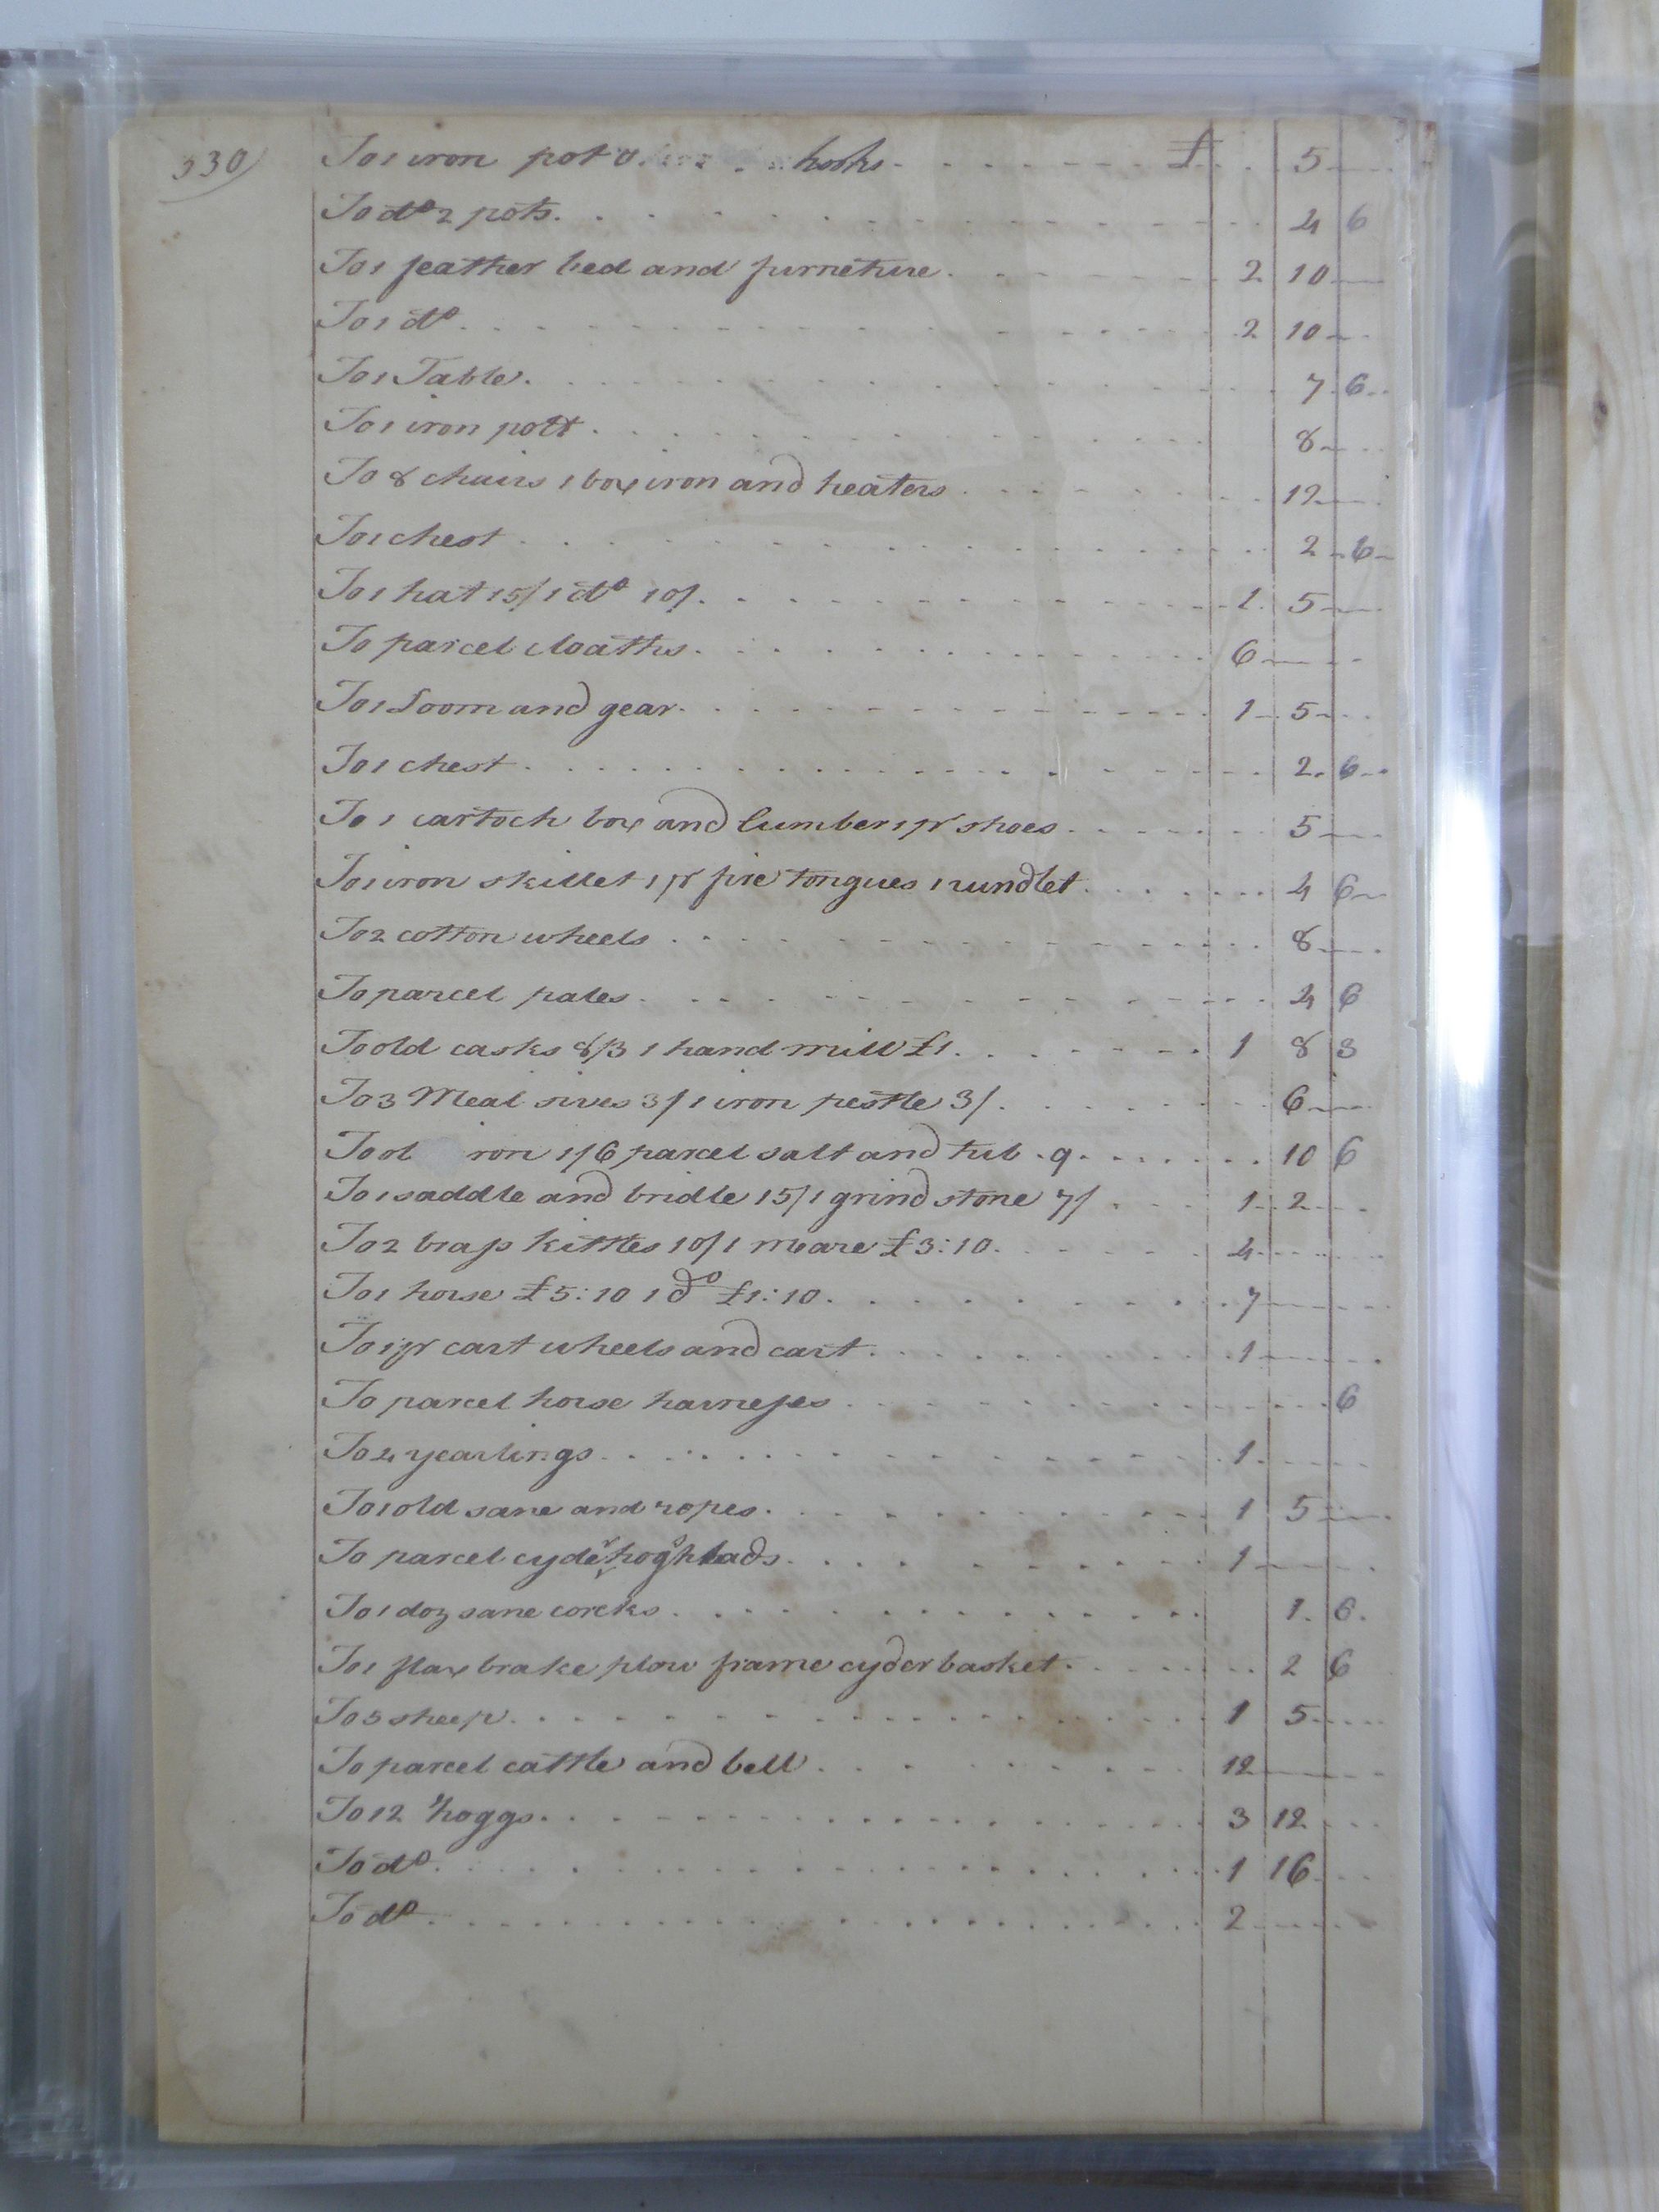 330) To 1 iron pot hooks £ 5
To do 2 pots 4 6
To 1 feather bed and furneture 2 10
To 1 do 2 10
To 1 Table 7 6
To 1 iron pott 8
To 8 chairs 1 box iron and heaters 12
To 1 chest 2 6
To 1 hat 15/ 1 do 10/ 1 5
To parcel cloaths 6
To 1 Loom and gear 1 5
To 1 chest 2 6
To 1 cartoch box and lumber 1 pr shoes 5
To 1 iron skillet 1 pr fire tongues 1 rundlet 4 6
To 2 cotton wheels 8
To parcel pales 4 6
To old casks 8/3 1 hand mill £1 1 8 3
To 3 Meal sives 3/ 1 iron pestle 3/ 6
To ol ron 1/6 parcel salt and tub 9 10 6
To 1 saddle and bridle 15/ 1 grind stone 7/ 1 2
To 2 brass kittles 10/ 1 meare £3:10 4
To 1 horse £5:10 1 do £1:10 7
To 1 pr cart wheels and cart 1
To parcel horse harnesses 6
To 4 yearlings 1
To 1 old sane and ropes 1 5
To parcel cyder hoghlads 1
To 1 doz sane corcks 1 6
To 1 flax brake plow frame cyder basket 2 6
To 5 sheep 1 5
To parcel cattle and bell 12
To 12 hoggs 3 12
To do 1 16
To do 2